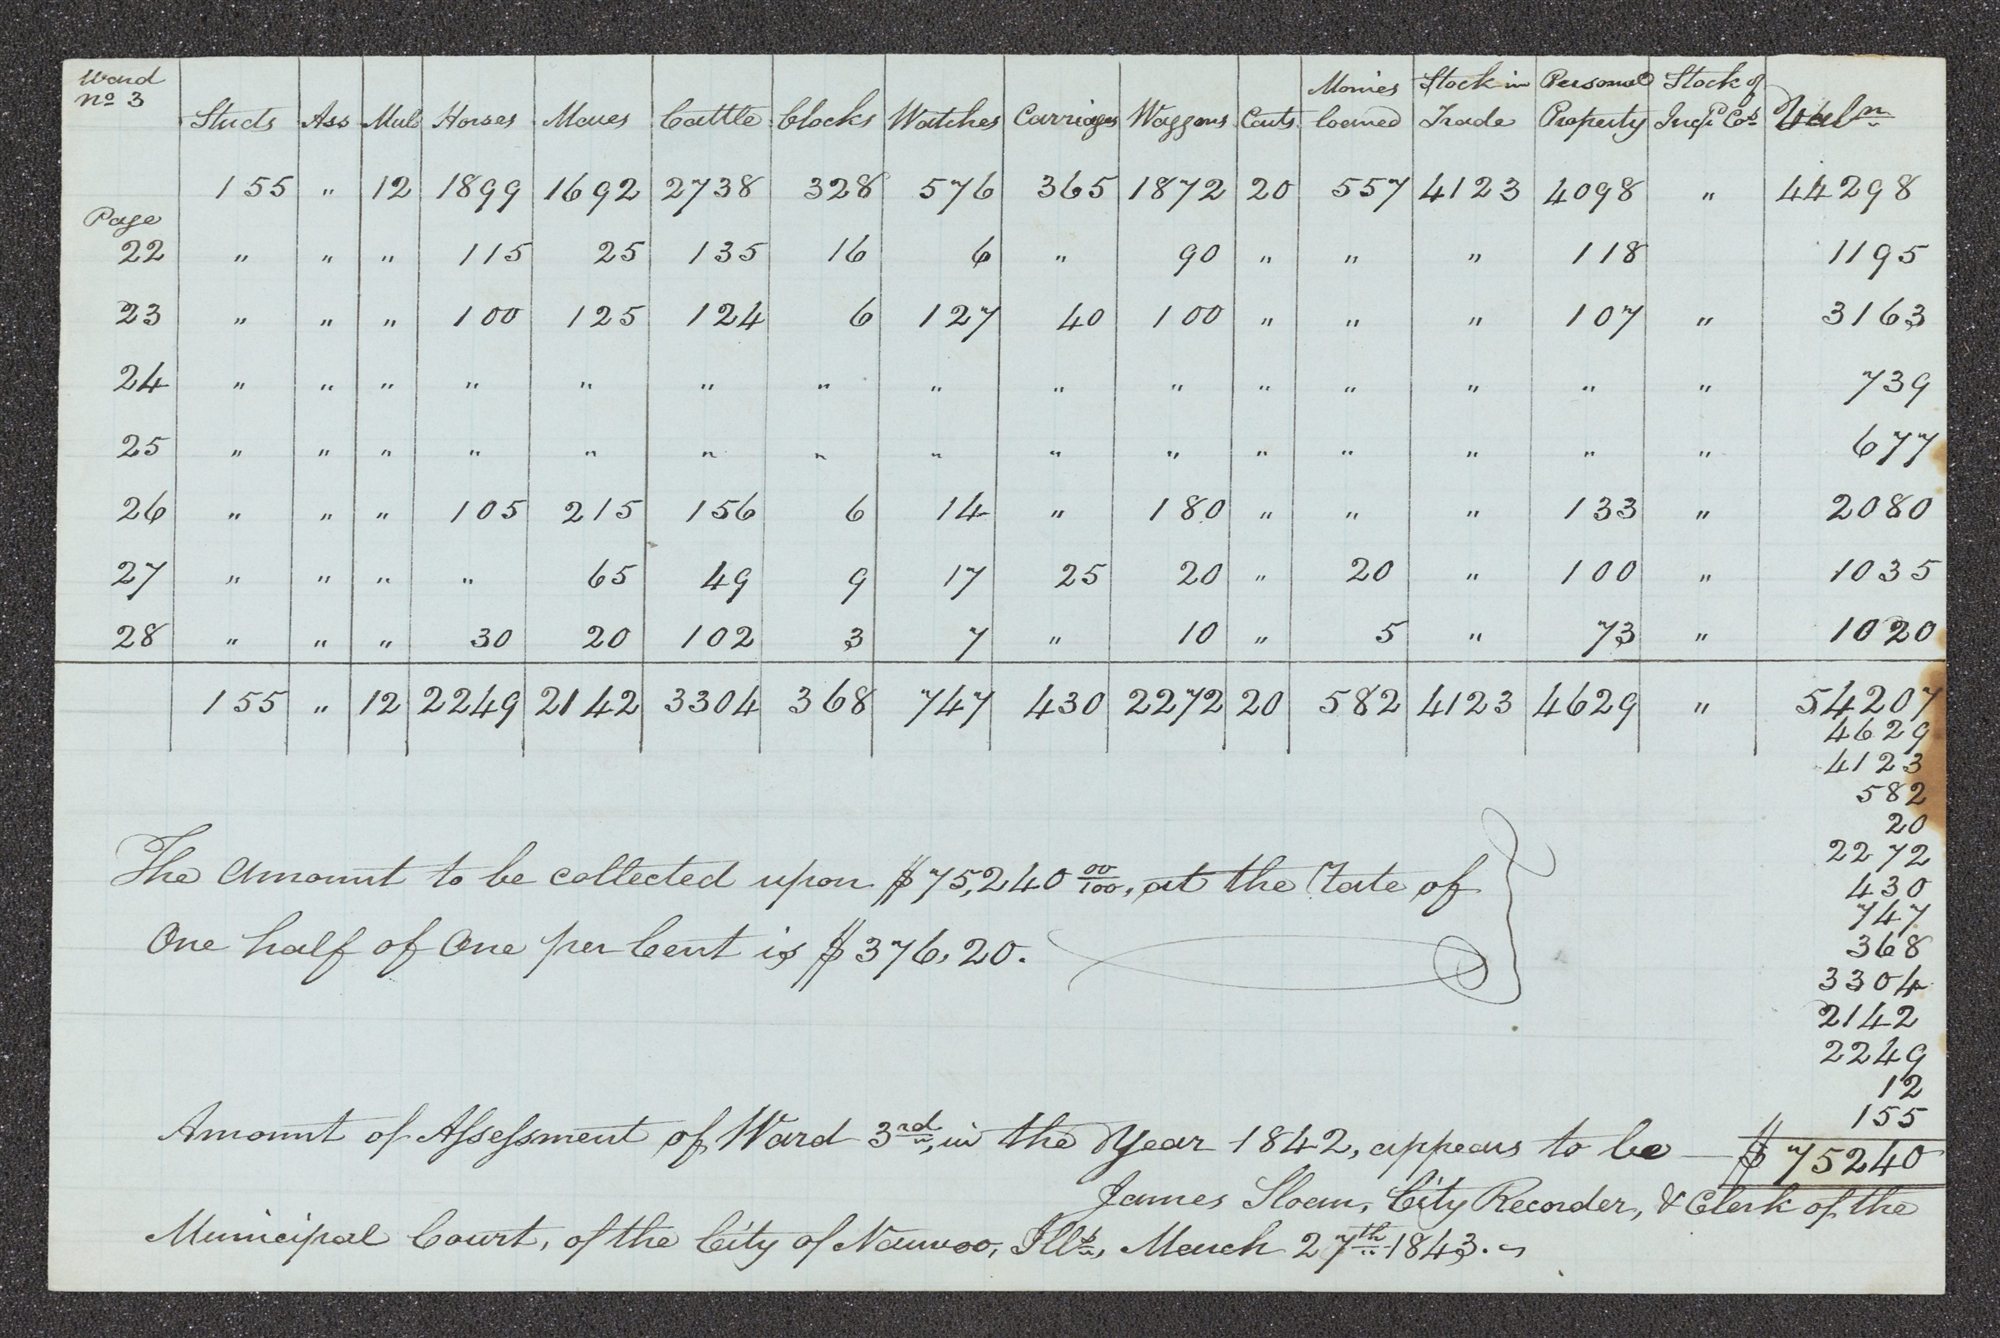 Ward
No 3
Studs Ass Mul Horses Mares Cattle Clocks Watches Carriages Waggons Carts Monies loaned Stock in Trade Personal Property Stock of Incp. Cos. Valn
155 " 12 1899 1692 2738 328 576 365 1872 20 557 4123 4098 " 44298
Page
22 " " " 115 25 135 16 6 " 90 " " " 118 1195
23 " " " 100 125 124 6 127 40 100 " " " 107 " 3163
24 " " " " " " " " " " " " " " " 739
25 " " " " " " " " " " " " " " " 677
26 " " " 105 215 156 6 14 " 180 " " " 133 " 2080
27 " " " " 65 49 9 17 25 20 " 20 " 100 " 1035
28 " " " 30 20 102 3 7 " 10 " 5 " 73 " 1020
155 " 12 2249 2142 3304 368 747 430 2272 20 582 4123 4629 " 54207
4629
4123
582
20
2272
430
747
368
3304
2142
2249
12
155
The Amount to be collected upon $75,240 00/100, at the rate of
One half of One per Cent is $376,20.
Amount of Assessment of Ward 3rd, in the Year 1842, appears to be — $75240
James Sloan, City Recorder, & Clerk of the
Municipal Court, of the City of Nauvoo, Ills, March 27th 1843.